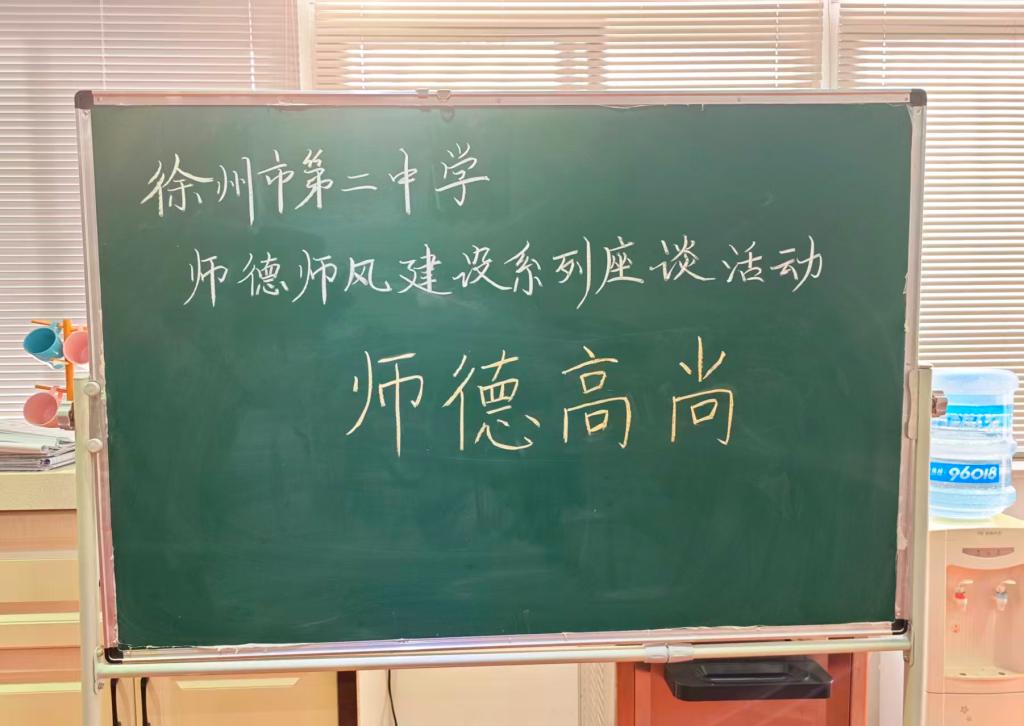 徐州市第二中学
师德师风建设系列座谈活动
师德高尚
96018